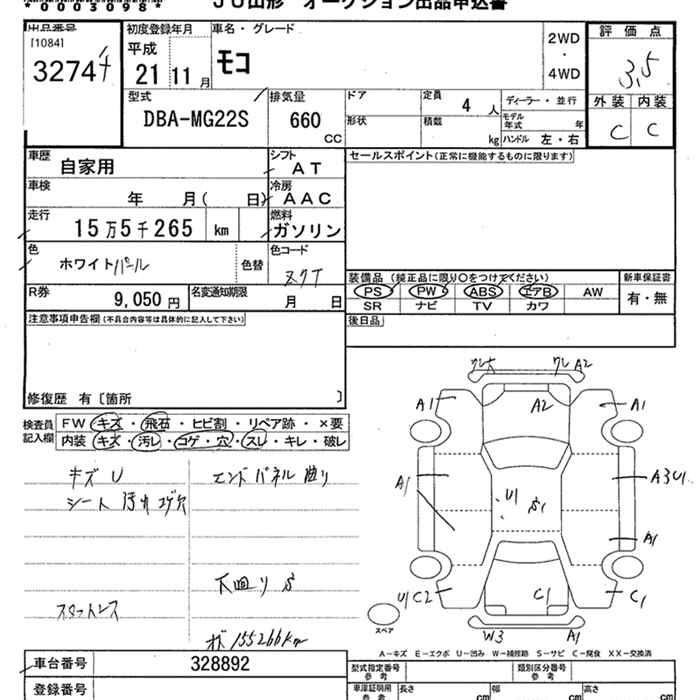 *0003098*
JU山形 オークション出品申込書
出品番号
[1084]
3274
初度登録年月
平成
21 11 月
車名・グレード
モコ
2WD
・
4WD
評価点
3,5
外装 内装
C C
型式
DBA-MG22S
排気量
660
CC
ドア
定員
4 人
形状
積載
kg
ディーラー・並行
モデル
年式
年
ハンドル 左・右
車歴
自家用
シフト
AT
車検
年 月( 日)
冷房
AAC
走行
15万5千265 km
燃料
ガソリン
色
ホワイトパール
色替
色コード
R券
9,050 円
名変通知期限
月 日
セールスポイント(正常に機能するものに限ります)
装備品 (純正品に限り○をつけてください)
PS PW ABS エアB AW
SR ナビ TV カワ
新車保証書
有・無
後日品
注意事項申告欄(不具合内容等は具体的に記入して下さい)
修復歴 有〔箇所 〕
検査員
記入欄
FW キズ・飛石・ヒビ割・リペア跡・×要
内装 キズ・汚レ・コゲ・穴・スレ・キレ・破レ
キズ U
シート 汚れ コゲ穴
エンドパネル 曲り
下回り S
スタットレス
オド 155266km
ワレ大 ワレ A2
A1 A2 A1
A1 U1 S1 A3U1
A1
U1 C2 C1 C1
W3 A1
スペア
A−キズ E−エクボ U−凹み W−補修跡 S−サビ C−腐食 XX−交換済
車台番号
328892
登録番号
型式指定番号
参考
類別区分番号
参考
車庫証明用
参考
長さ
cm
幅
cm
高さ
cm